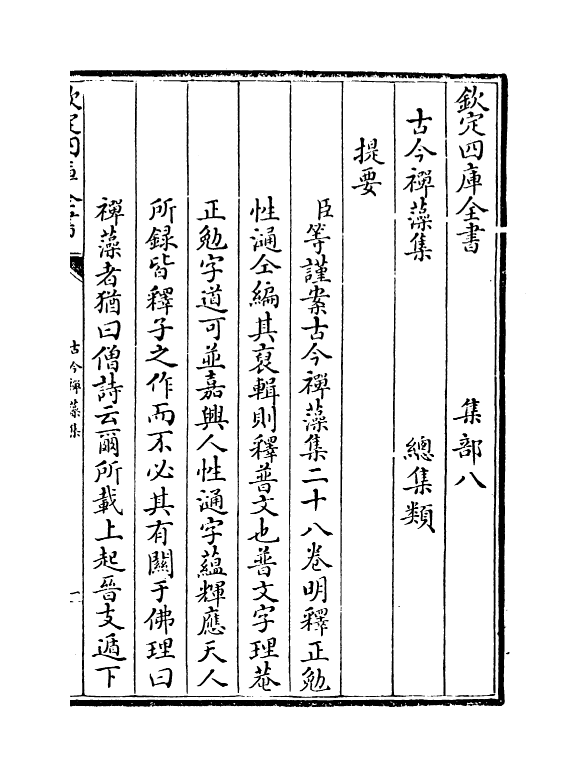 欽定四庫全書　集部八
古今禪藻集　總集類
提要
臣等謹案古今禪藻集二十八卷明釋正勉
性㴋仝編其裒輯則釋普文也普文字理菴
正勉字道可並嘉興人性㴋字蘊輝應天人
所録皆釋子之作而不必其有關于佛理曰
禪藻者猶曰僧詩云爾所載上起晉支遁下
古今禪藻集